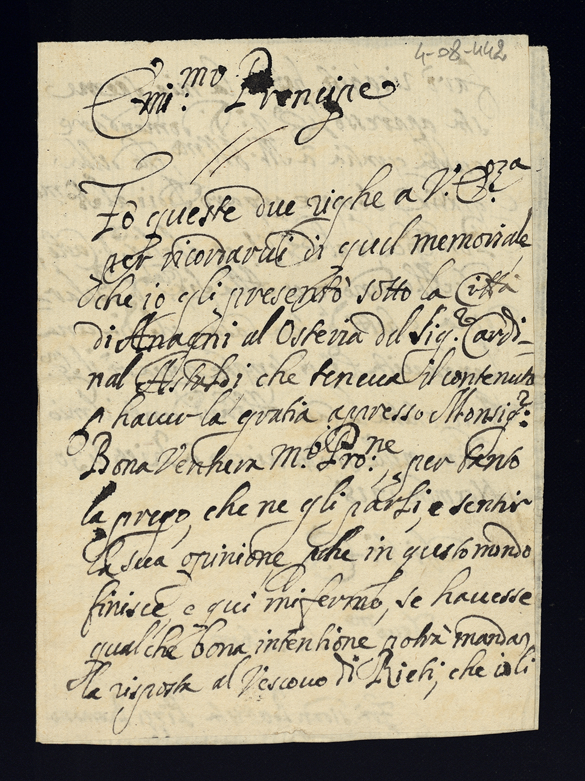 4-08-442
Emi:mo Prencipe
Fò queste due righe a V. Eoza
per ricordarvli di quel memoriale
che io gli presentò sotto la Città
di Anagni al Osteria del Sig.re Cardi-
nal Astaldi che teneva il contenuto
p haver la gratia apresso Monsig.re
Bona Venthura M.o Prone: per tanto
la prego, che ne gli parli, e sentir
la sua opinione che in questo mondo
finisce e qui mi fermo, se havesse
qualche bona intentione potrà mandar
la risposta al Vescovo di Rieti, che io li